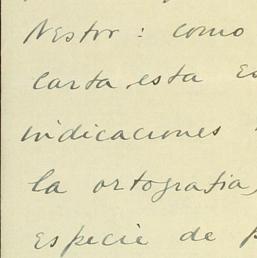 Nestor: como
carta, esta es
indicaciones
la ortografia,
especie de p